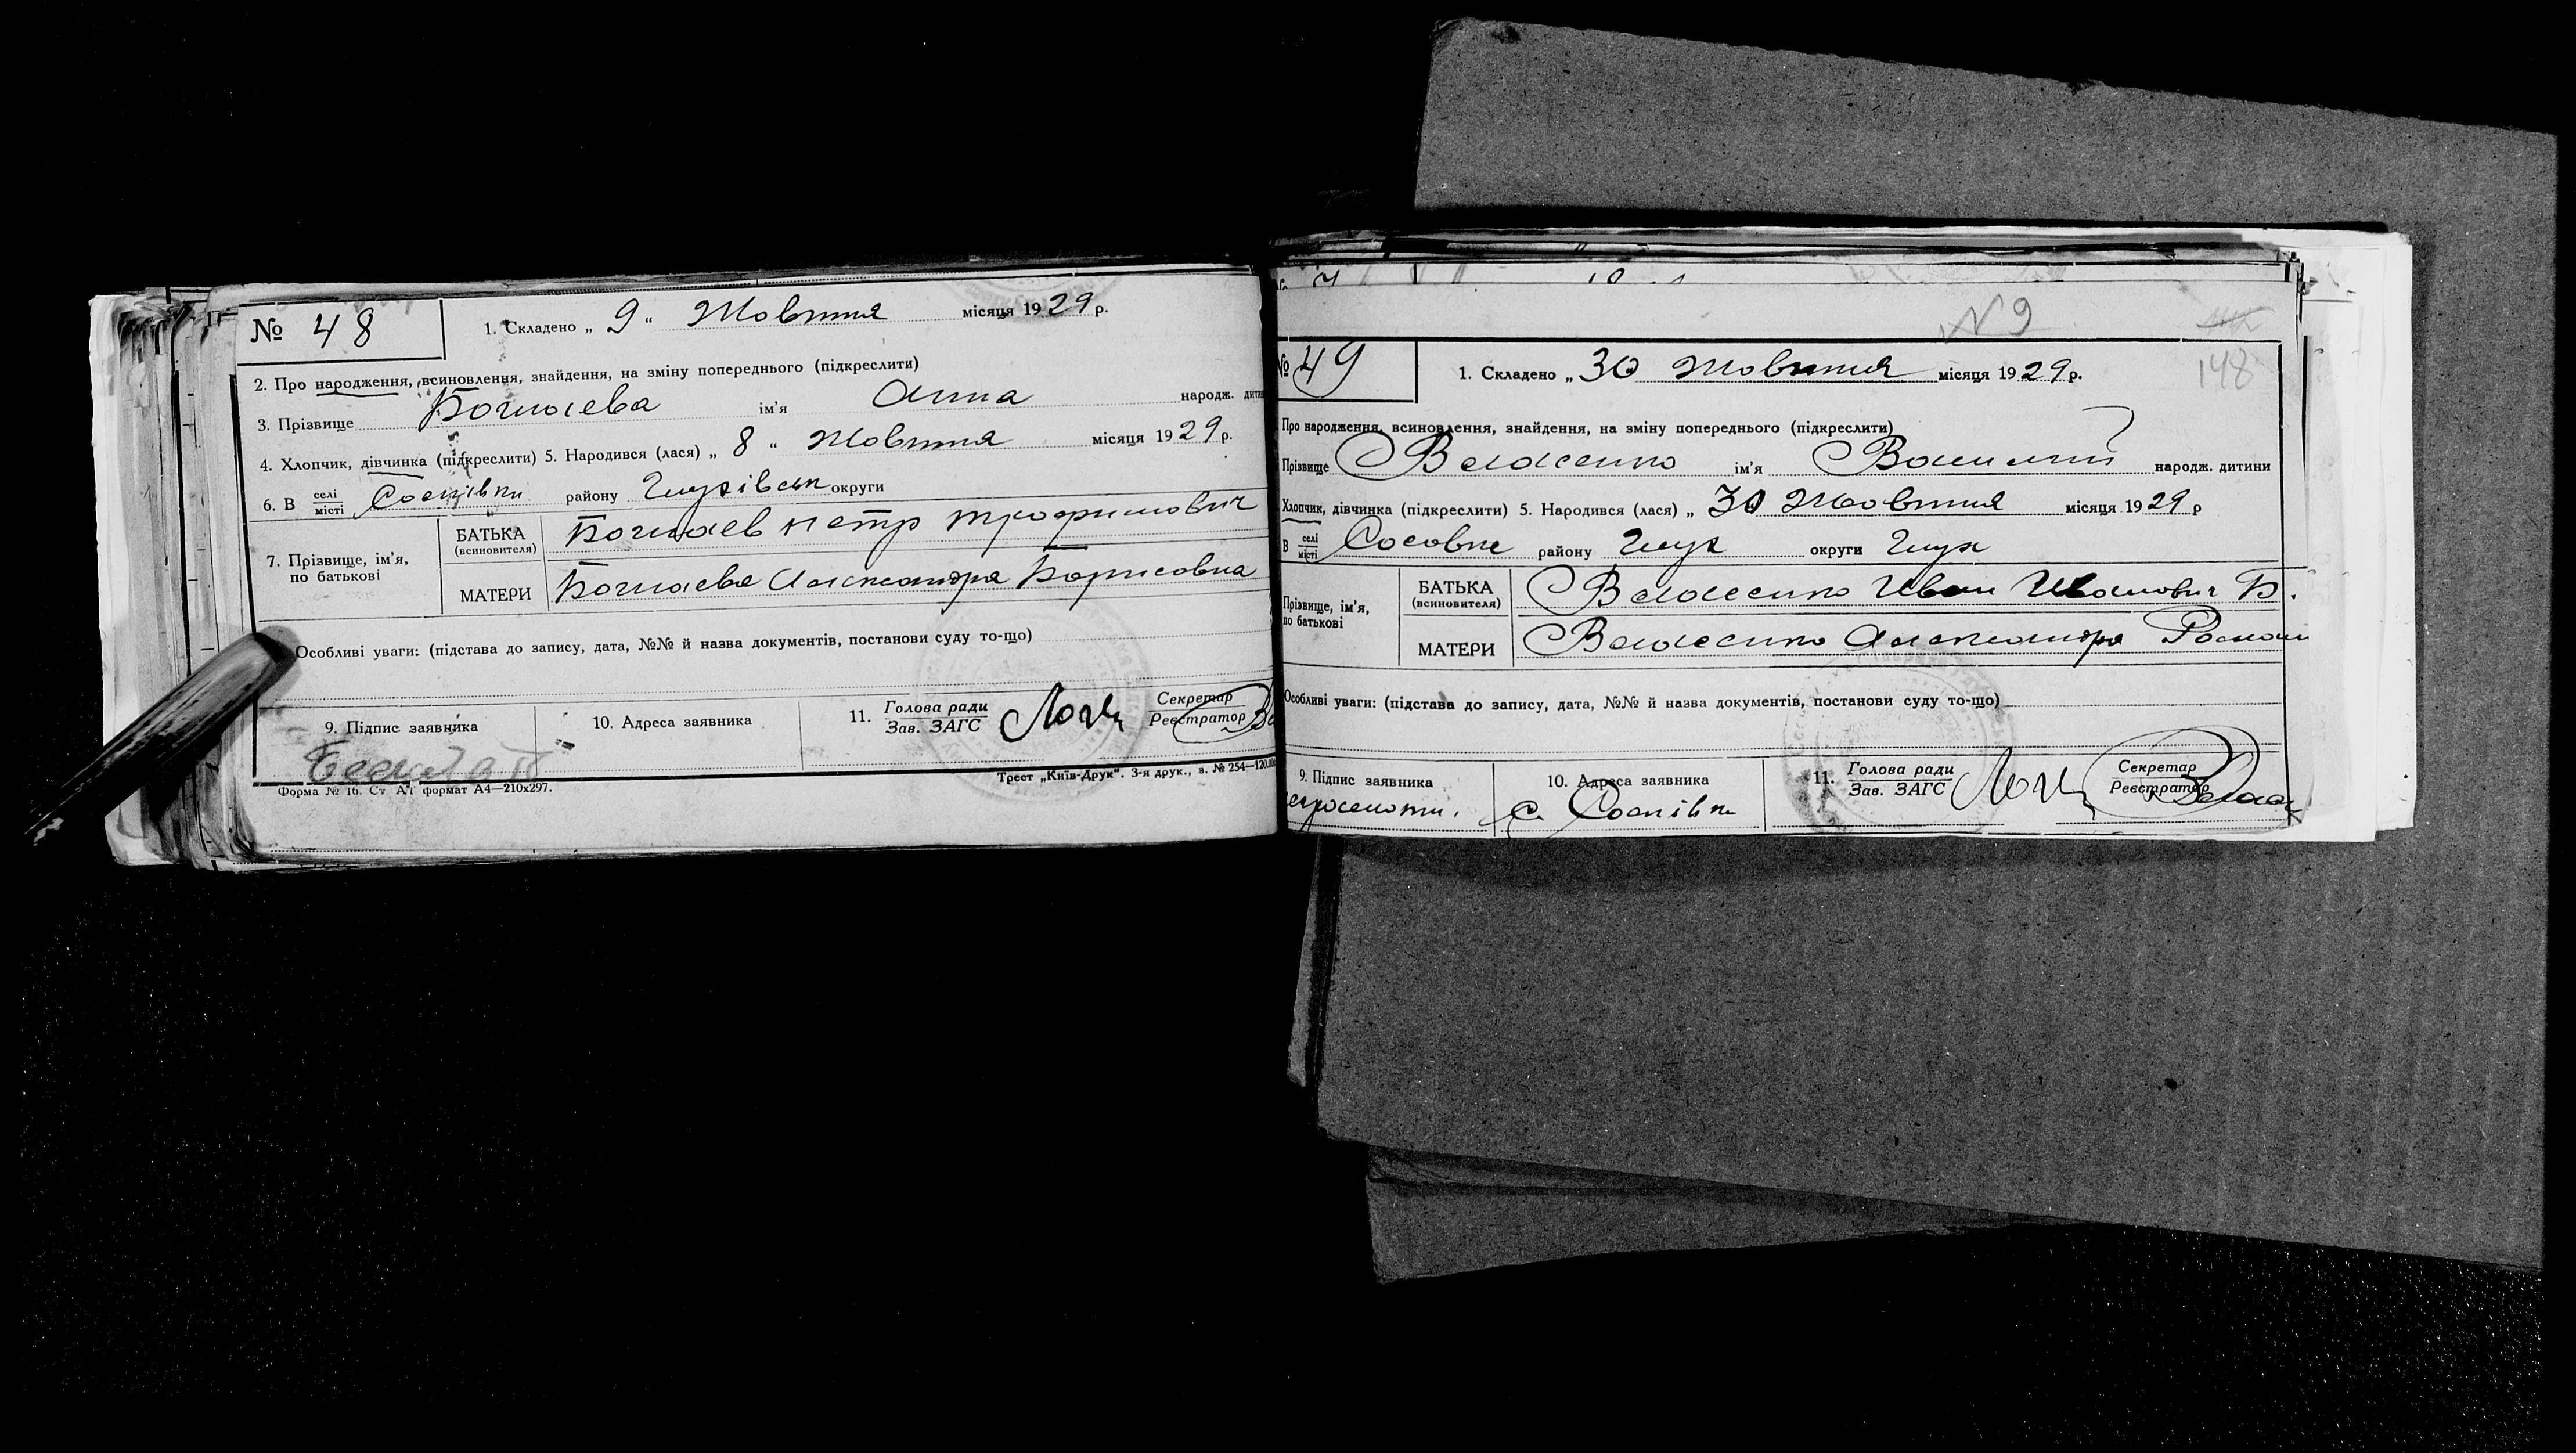 № 48
1. Складено „ 9 “ Жовтня місяця 1929 р.
2. Про народження, всиновлення, знайдення, на зміну попереднього (підкреслити)
3. Прізвище ім'я Анна народж.
4. Хлопчик, дівчинка (підкреслити) 5. Народився (лася) „ 8 “ Жовтня місяця 1929 р.
6. В селі місті району Глухівськ округи
7. Прізвище, ім'я, по батькові
БАТЬКА (всиновителя) Петр Трофимович
МАТЕРИ Александра Борисовна
Особливі уваги: (підстава до запису, дата, №№ й назва документів, постанови суду то-що)
9. Підпис заявника
10. Адреса заявника
11. Голова ради Зав. ЗАГС
Секретар Реєстратор
Форма № 16. Ст АТ формат А4—210х297.
Трест „Київ-Друк“. 3-я друк., з. № 254—120.
N 9
148
№ 49
1. Складено „ 30 Жовтня місяця 1929 р.
Про народження, всиновлення, знайдення, на зміну попереднього (підкреслити)
Прізвище Власенко ім'я Василий народж. дитини
Хлопчик, дівчинка (підкреслити) 5. Народився (лася) „ 30 Жовтня місяця 1929 р
В селі місті району Глух округи Глух
Прізвище, ім'я, по батькові
БАТЬКА (всиновителя) Власенко Иван Иванович Б.
МАТЕРИ Власенко Александра
Особливі уваги: (підстава до запису, дата, №№ й назва документів, постанови суду то-що)
9. Підпис заявника
10. Адреса заявника
с.
11. Голова ради Зав. ЗАГС
Секретар Реєстратор